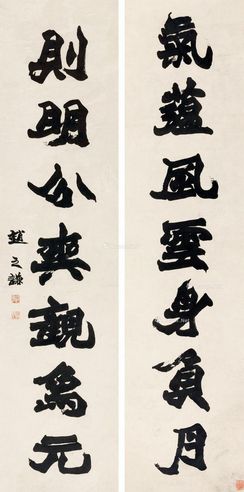 氣蘊風雲身負月
則明公爽觀為元
趙之謙